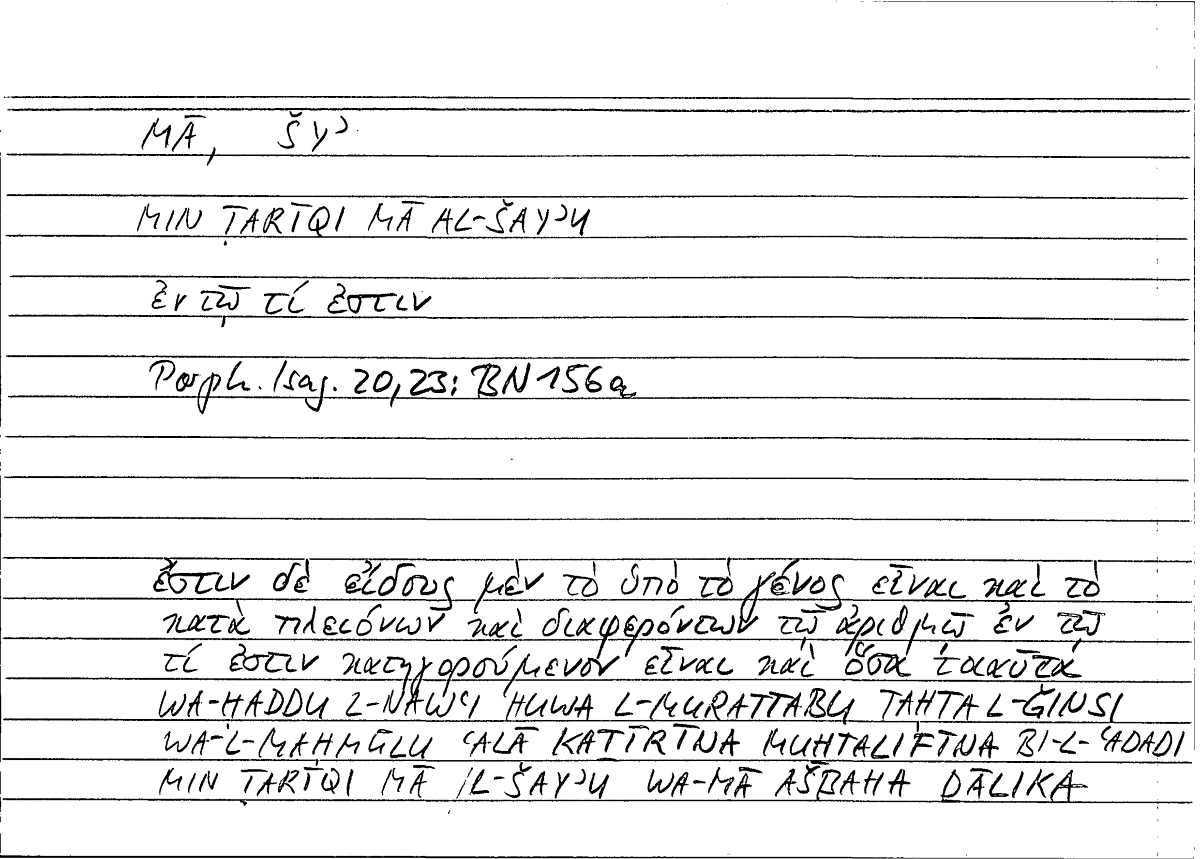 MĀ, ŠYʾ
MIN ṬARĪQI MĀ AL-ŠAYʾU
ἐν τῷ τί ἐστιν
Porph. Isag. 20,23: BN 156a
ἔστιν δὲ εἴδους μὲν τὸ ὑπὸ τὸ γένος εἶναι καὶ τὸ
κατὰ πλειόνων καὶ διαφερόντων τῷ ἀριθμῷ ἐν τῷ
τί ἐστιν κατηγορούμενον εἶναι καὶ ὅσα τοιαῦτα
WA-ḤADDU L-NAWʿI HUWA L-MURATTABU TAḤTA L-ǦINSI
WA-L-MAḤMŪLU ʿALĀ KAṮĪRĪNA MUḪTALIFĪNA BI-L-ʿADADI
MIN ṬARĪQI MĀ L-ŠAYʾU WA-MĀ AŠBAHA ḎĀLIKA